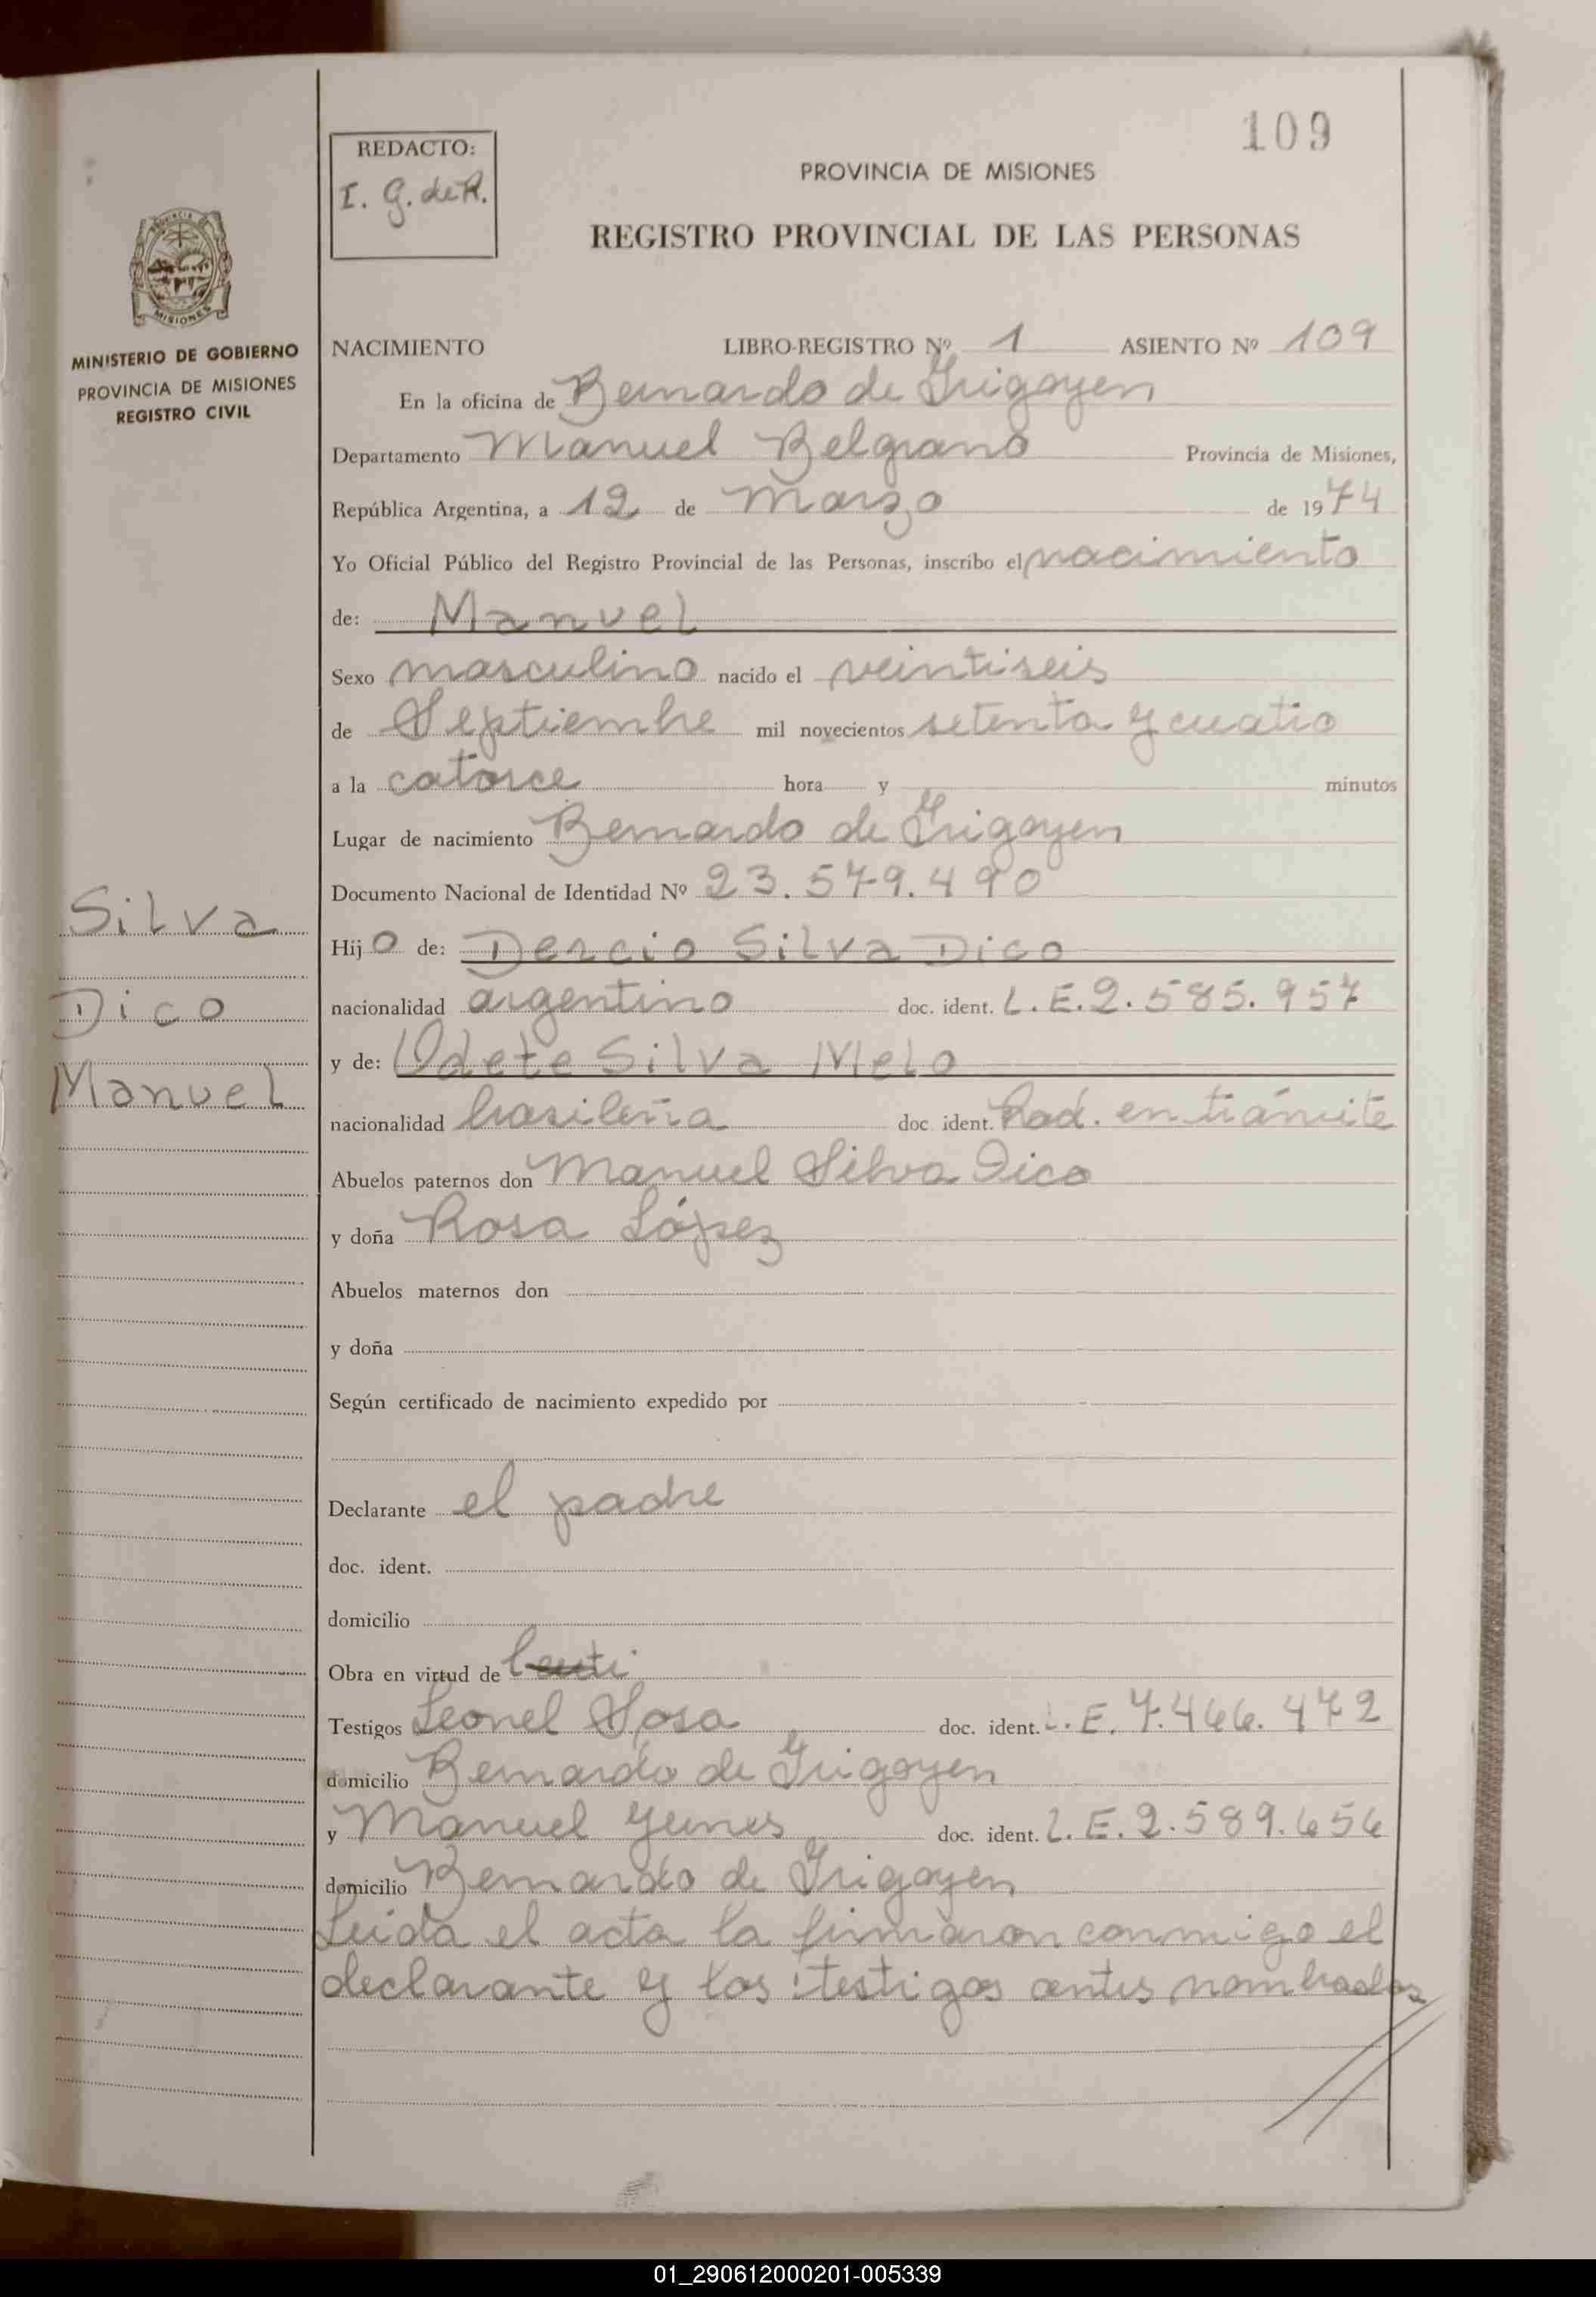 109
REDACTO:
I. G. de R.
PROVINCIA DE MISIONES
REGISTRO PROVINCIAL DE LAS PERSONAS
MISIONES
MINISTERIO DE GOBIERNO
PROVINCIA DE MISIONES
REGISTRO CIVIL
NACIMIENTO LIBRO-REGISTRO Nº 1 ASIENTO Nº 109
En la oficina de Bernardo de Irigoyen
Departamento Manuel Belgrano Provincia de Misiones,
República Argentina, a 12 de Marzo de 1974
Yo Oficial Público del Registro Provincial de las Personas, inscribo el nacimiento
de: Manuel
Sexo masculino nacido el veintiseis
de Septiembre mil novecientos setenta y cuatro
a la catorce hora y minutos
Lugar de nacimiento Bernardo de Irigoyen
Documento Nacional de Identidad Nº 23.579.490
Silva
Dico
Manuel
Hijo de: Dercio Silva Dico
nacionalidad argentino doc. ident. L.E.2.585.957
y de: Odete Silva Melo
nacionalidad brasileña doc ident. Rad. en trámite
Abuelos paternos don Manuel Silva Dico
y doña Rosa López
Abuelos maternos don
y doña
Según certificado de nacimiento expedido por
Declarante el padre
doc. ident.
domicilio
Obra en virtud de
Testigos Leonel Sosa doc. ident. L.E. 7.466.472
domicilio Bernardo de Irigoyen
y Manuel Yunes doc. ident. L.E.2.589.656
domicilio Bernardo de Irigoyen
Leida el acta la firmaron conmigo el
declarante y los testigos antes nombrados
01_290612000201-005339